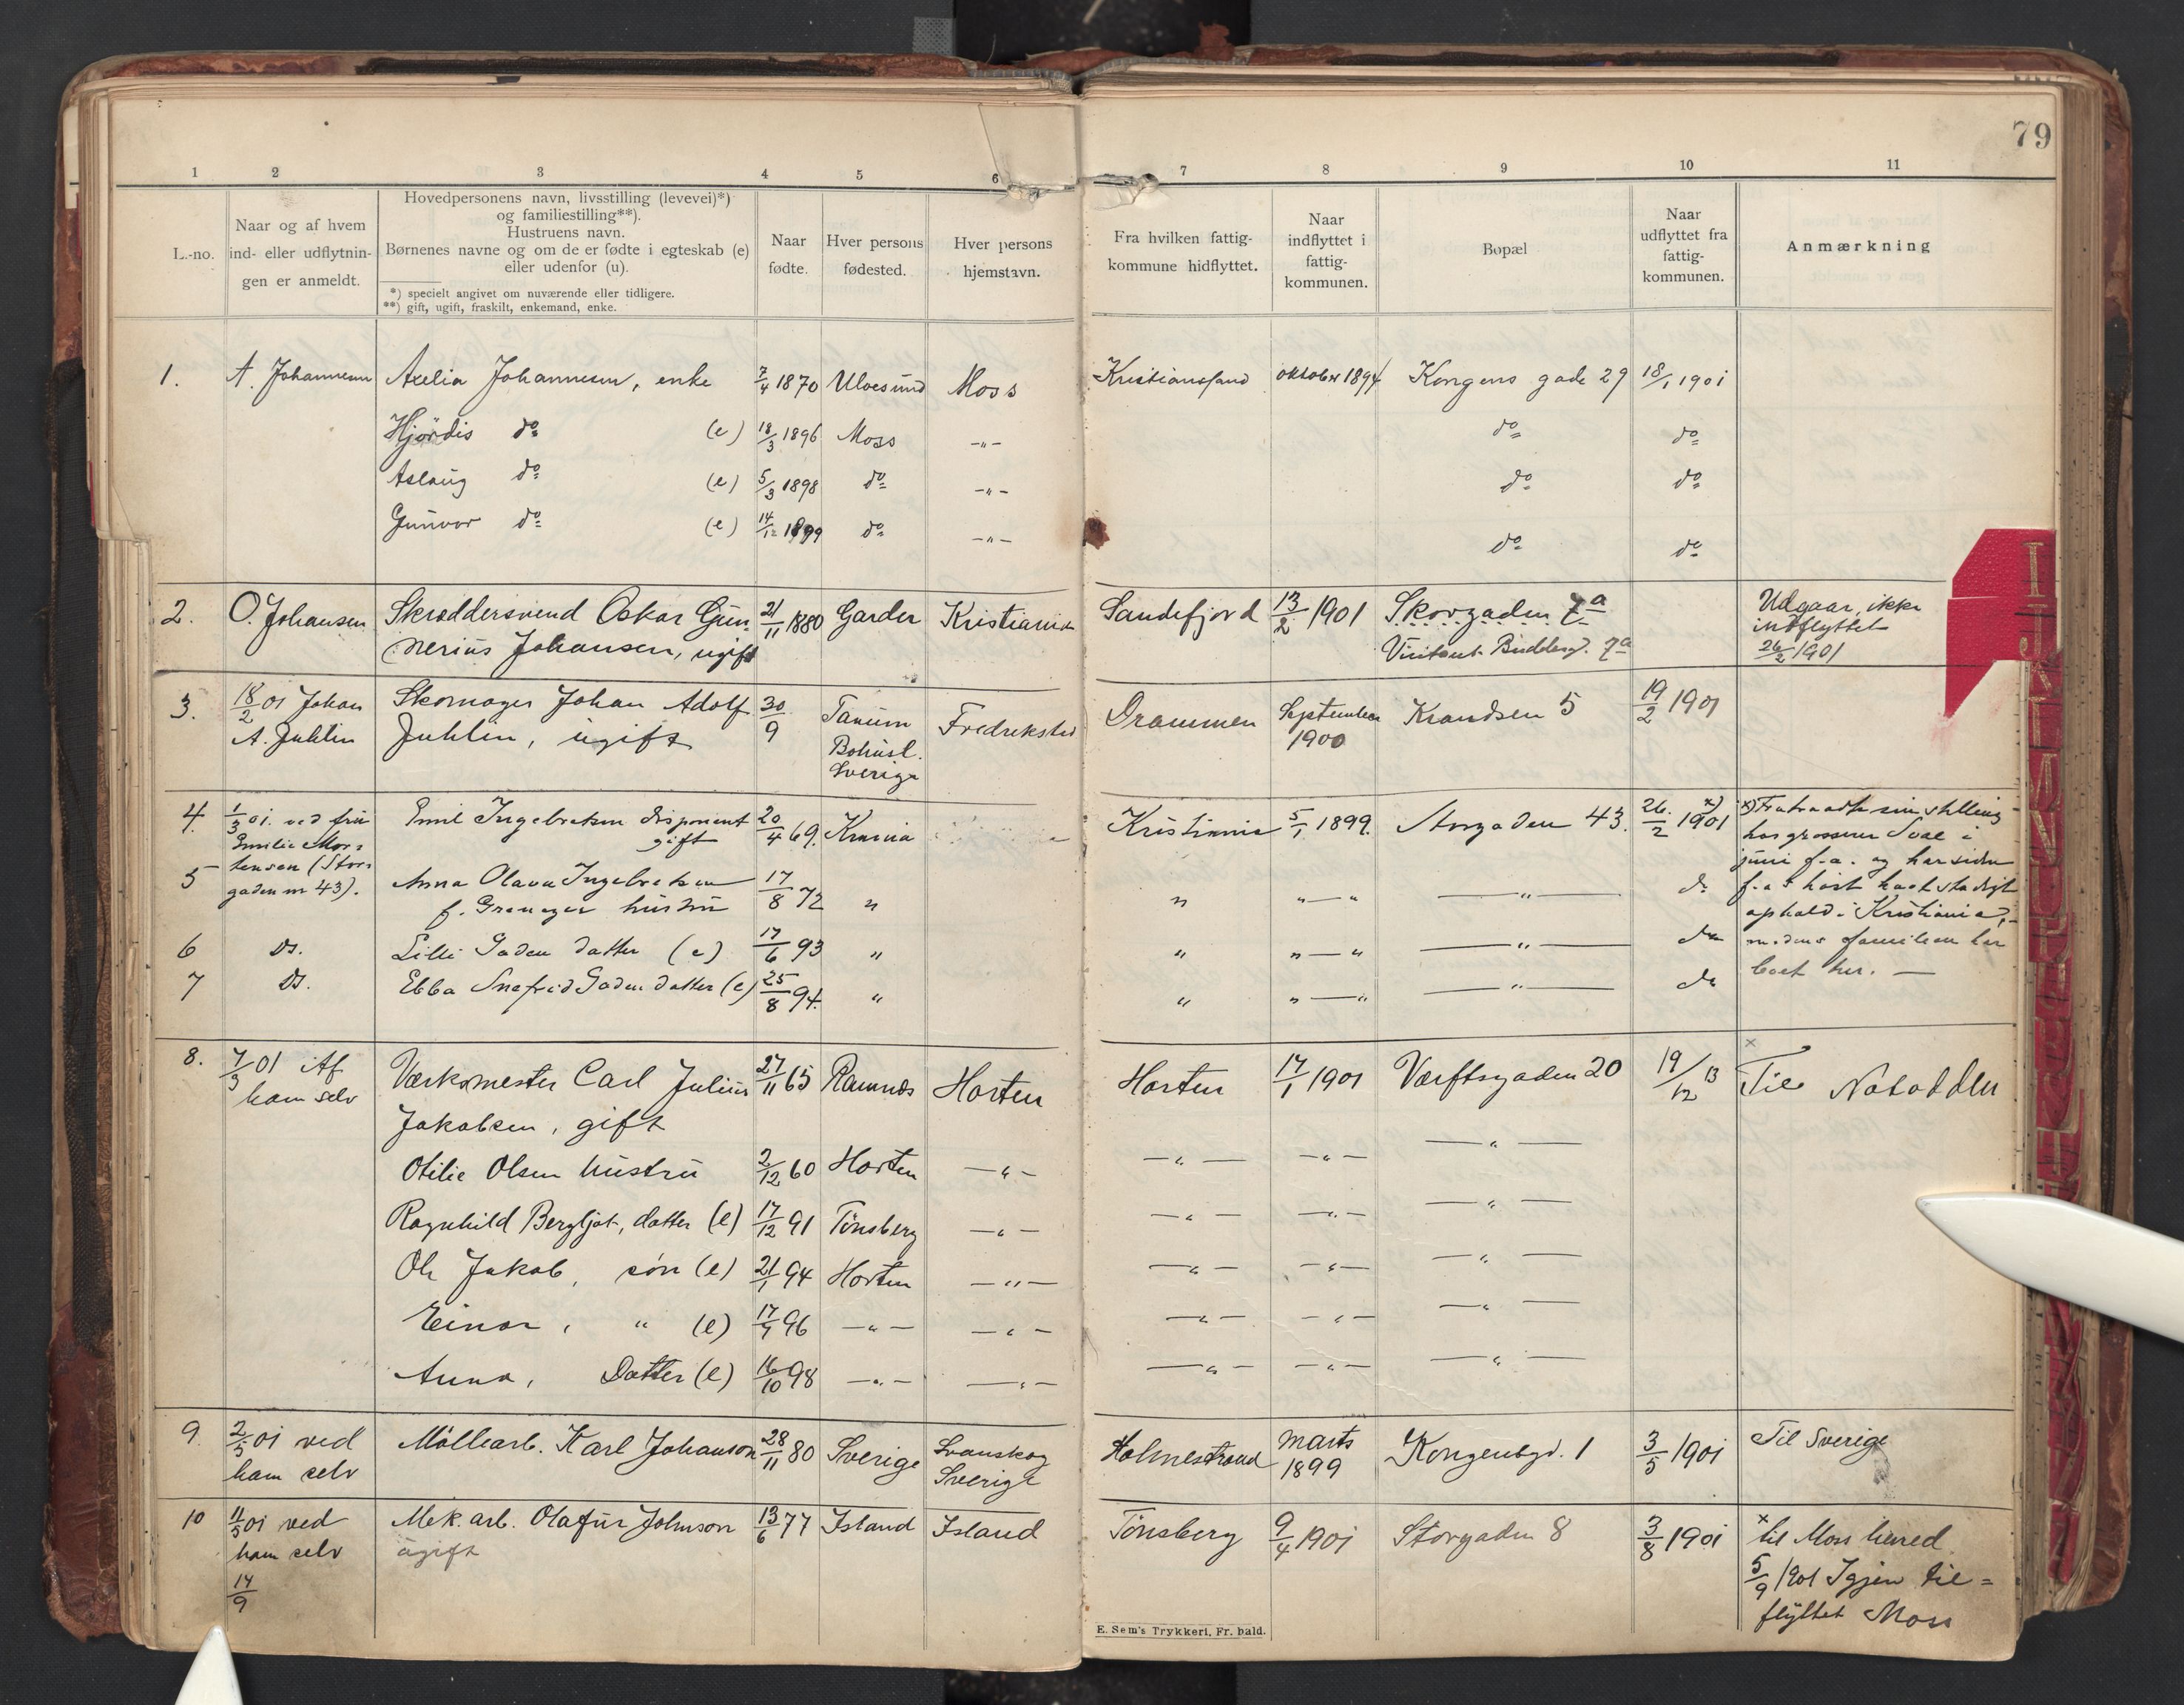 79
1 2 3 4 5 6 7 8 9 10 11
L.-no.
Naar og af hvem
ind- eller udflytnin-
gen er anmeldt.
Hovedpersonens navn, livsstilling (levevei)*)
og familiestilling**).
Hustruens navn.
Børnenes navne og om de er fødte i egteskab (e)
eller udenfor (u).
*) specielt angivet om nuværende eller tidligere.
**) gift, ugift, fraskilt, enkemand, enke.
Naar
fødte.
Hver persons
fødested.
Hver persons
hjemstavn.
Fra hvilken fattig-
kommune hidflyttet.
Naar
indflyttet i
fattig-
kommunen.
Bopæl
Naar
udflyttet fra
fattig-
kommunen.
Anmærkning
1. A. Johannesen Axelia Johannesen, enke 7/4 1870 Uloesund Moss Kristiansand oktober 1894 Kongens gade 29 18/1 1901
Hjørdis do (e) 18/3 1896 Moss —"— do do
Aslaug do (e) 5/3 1898 do —"— do do
Gunvor do (e) 14/12 1899 do —"— do do
2. O. Johansen Skræddersvend Oskar Gun- 21/11 1880 Garder Kristiania Sandefjord 13/2 1901 Skovgaden 7a Udgaar, ikke
nerius Johansen, ugift 7a indflyttet
26/2 1901
3. 18/2 01 Johan Skomager Johan Adolf 30/9 Tanum Fredrikstad Drammen September Krandsen 5 19/2 1901
A. Juhlin Juhlin, ugift Bohusl. 1900
Sverige
4. 1/3 01. ved fru Emil Ingebretsen disponent 20/4 69. Krania Kristiania 5/1 1899. Storgaden 43. 26/2 1901 x) x) Fratraadte sin stilling
Emilie Mor- gift hos grosserer Soae i
tensen (Stor- juni f.a. og har siden
5 gaden nr 43). Anna Olava Ingebretsen 17/8 72 " " "—" —"— do f.a.s høst havt stadigt
f. Grenager hustru ophold i Kristiania,
6 Do. Lilli Gaden datter (e) 17/6 93 " " "—" —"— do medens familien har
7 Do. Ebba Snefrid Gaden datter (e) 25/8 94. " " "—" —"— do boet her. —
8. 7/3 01 Af Værksmester Carl Julius 27/11 65 Ramnæs Horten Horten 17/1 1901 Værftsgaden 20 19/12 13 Til Notodden
ham selv Jakobsen, gift —"—
Otilie Olsen hustru 2/12 60 Horten —"— —"— —"— —"—
Ragnhild Bergljot, datter (e) 17/12 91 Tønsberg —"— —"— —"— —"—
Ole Jakob, søn (e) 21/1 94 Horten —"— —"— —"— —"—
Einar, " (e) 17/4 96 —"— —"— —"— —"— —"—
Anna, Datter (e) 16/10 98 —"— —"— —"— —"—
9. 2/5 01 ved Møllearb. Karl Johanson 28/11 80 Sverige Svanskog Holmestrand Marts Kongensgd. 1 3/5 1901 Til Sverige
ham selv Sverige 1899
10 11/5 01 ved Mek. arb. Olafur Johnson 13/6 77 Island Island Tønsberg 9/4 1901 Storgaden 8 3/8 1901 x til Moss herred
ham selv ugift 5/9 1901 Igjen til=
14/9 flyttet Moss
E. Sem's Trykkeri, Fr. hald.